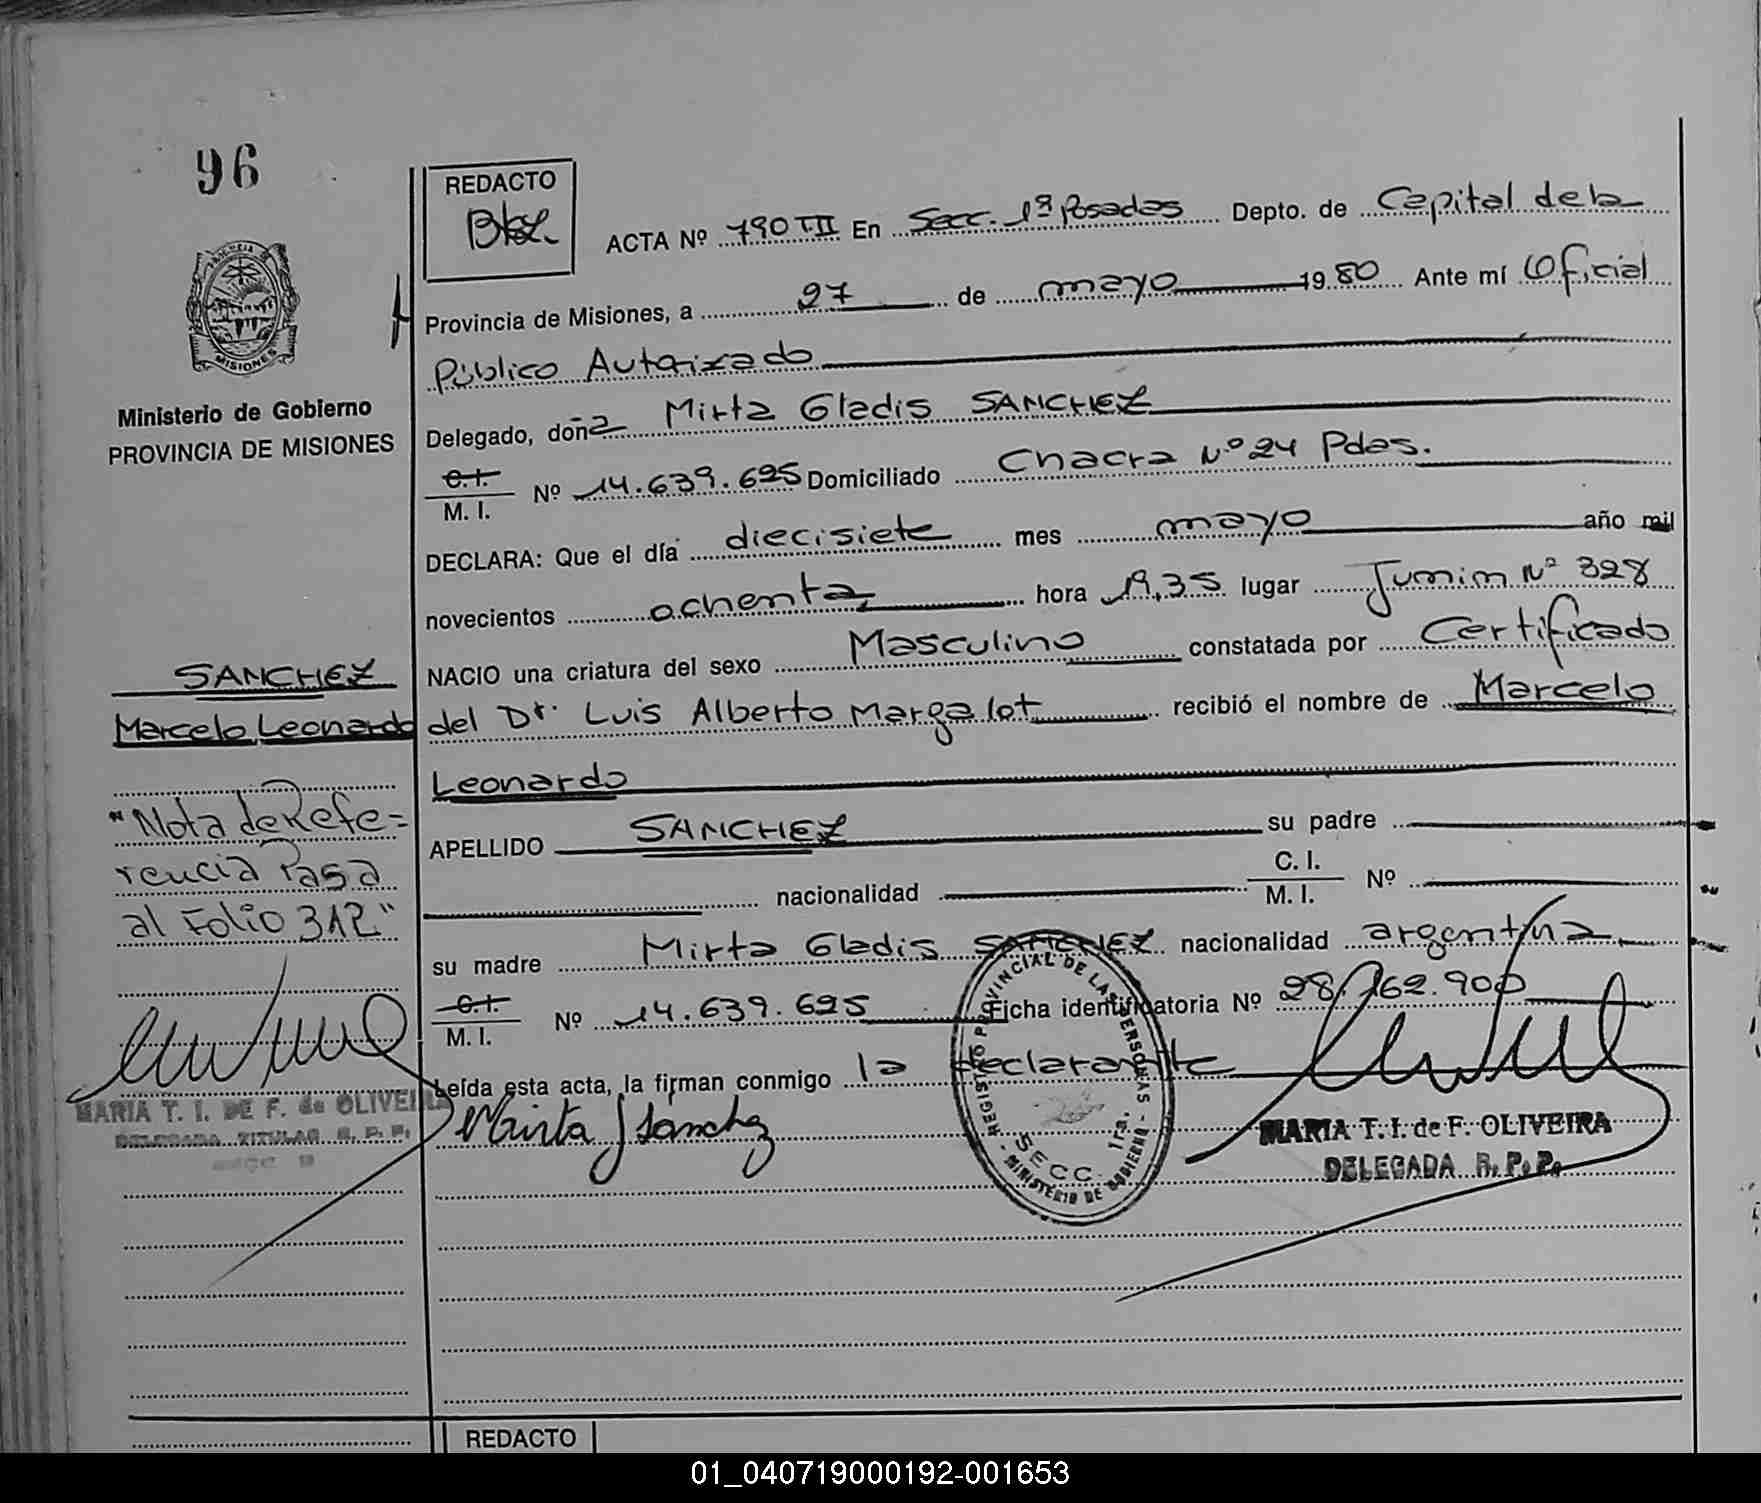 96
REDACTO
ACTA Nº 790 TII En Secc. 1ª Posadas Depto. de Capital de la
Provincia de Misiones, a 27 de mayo 1980 Ante mí Oficial
Público Autorizado
Delegado, doña Mirta Gladis SANCHEZ
C.I.
M. I. Nº 14.639.695 Domiciliado Chacra Nº 24 Pdas.
DECLARA: Que el día diecisiete mes mayo año mil
novecientos ochenta, hora 19,35 lugar Junin Nº 328
NACIO una criatura del sexo Masculino constatada por Certificado
del Dr. Luis Alberto Margalot recibió el nombre de Marcelo
Leonardo
APELLIDO SANCHEZ su padre
nacionalidad C. I.
M. I. Nº
su madre Mirta Gladis SANCHEZ nacionalidad argentina
C.I.
M. I. Nº 14.639.695 Ficha identificatoria Nº 28.162.900
Leída esta acta, la firman conmigo la declarante
Mirta G Sanchez
REGISTRO PROVINCIAL DE LAS PERSONAS - MINISTERIO DE GOBIERNO -
SECC. 1ra.
MARIA T. I. de F. OLIVEIRA
DELEGADA R. P. P.
MISIONES
Ministerio de Gobierno
PROVINCIA DE MISIONES
SANCHEZ
Marcelo Leonardo
"Nota de Refe=
rencia Pasa
al Folio 312"
MARIA T. I. DE F. de OLIVEIRA
DELEGADA TITULAR R. P. P.
REDACTO
01_040719000192-001653